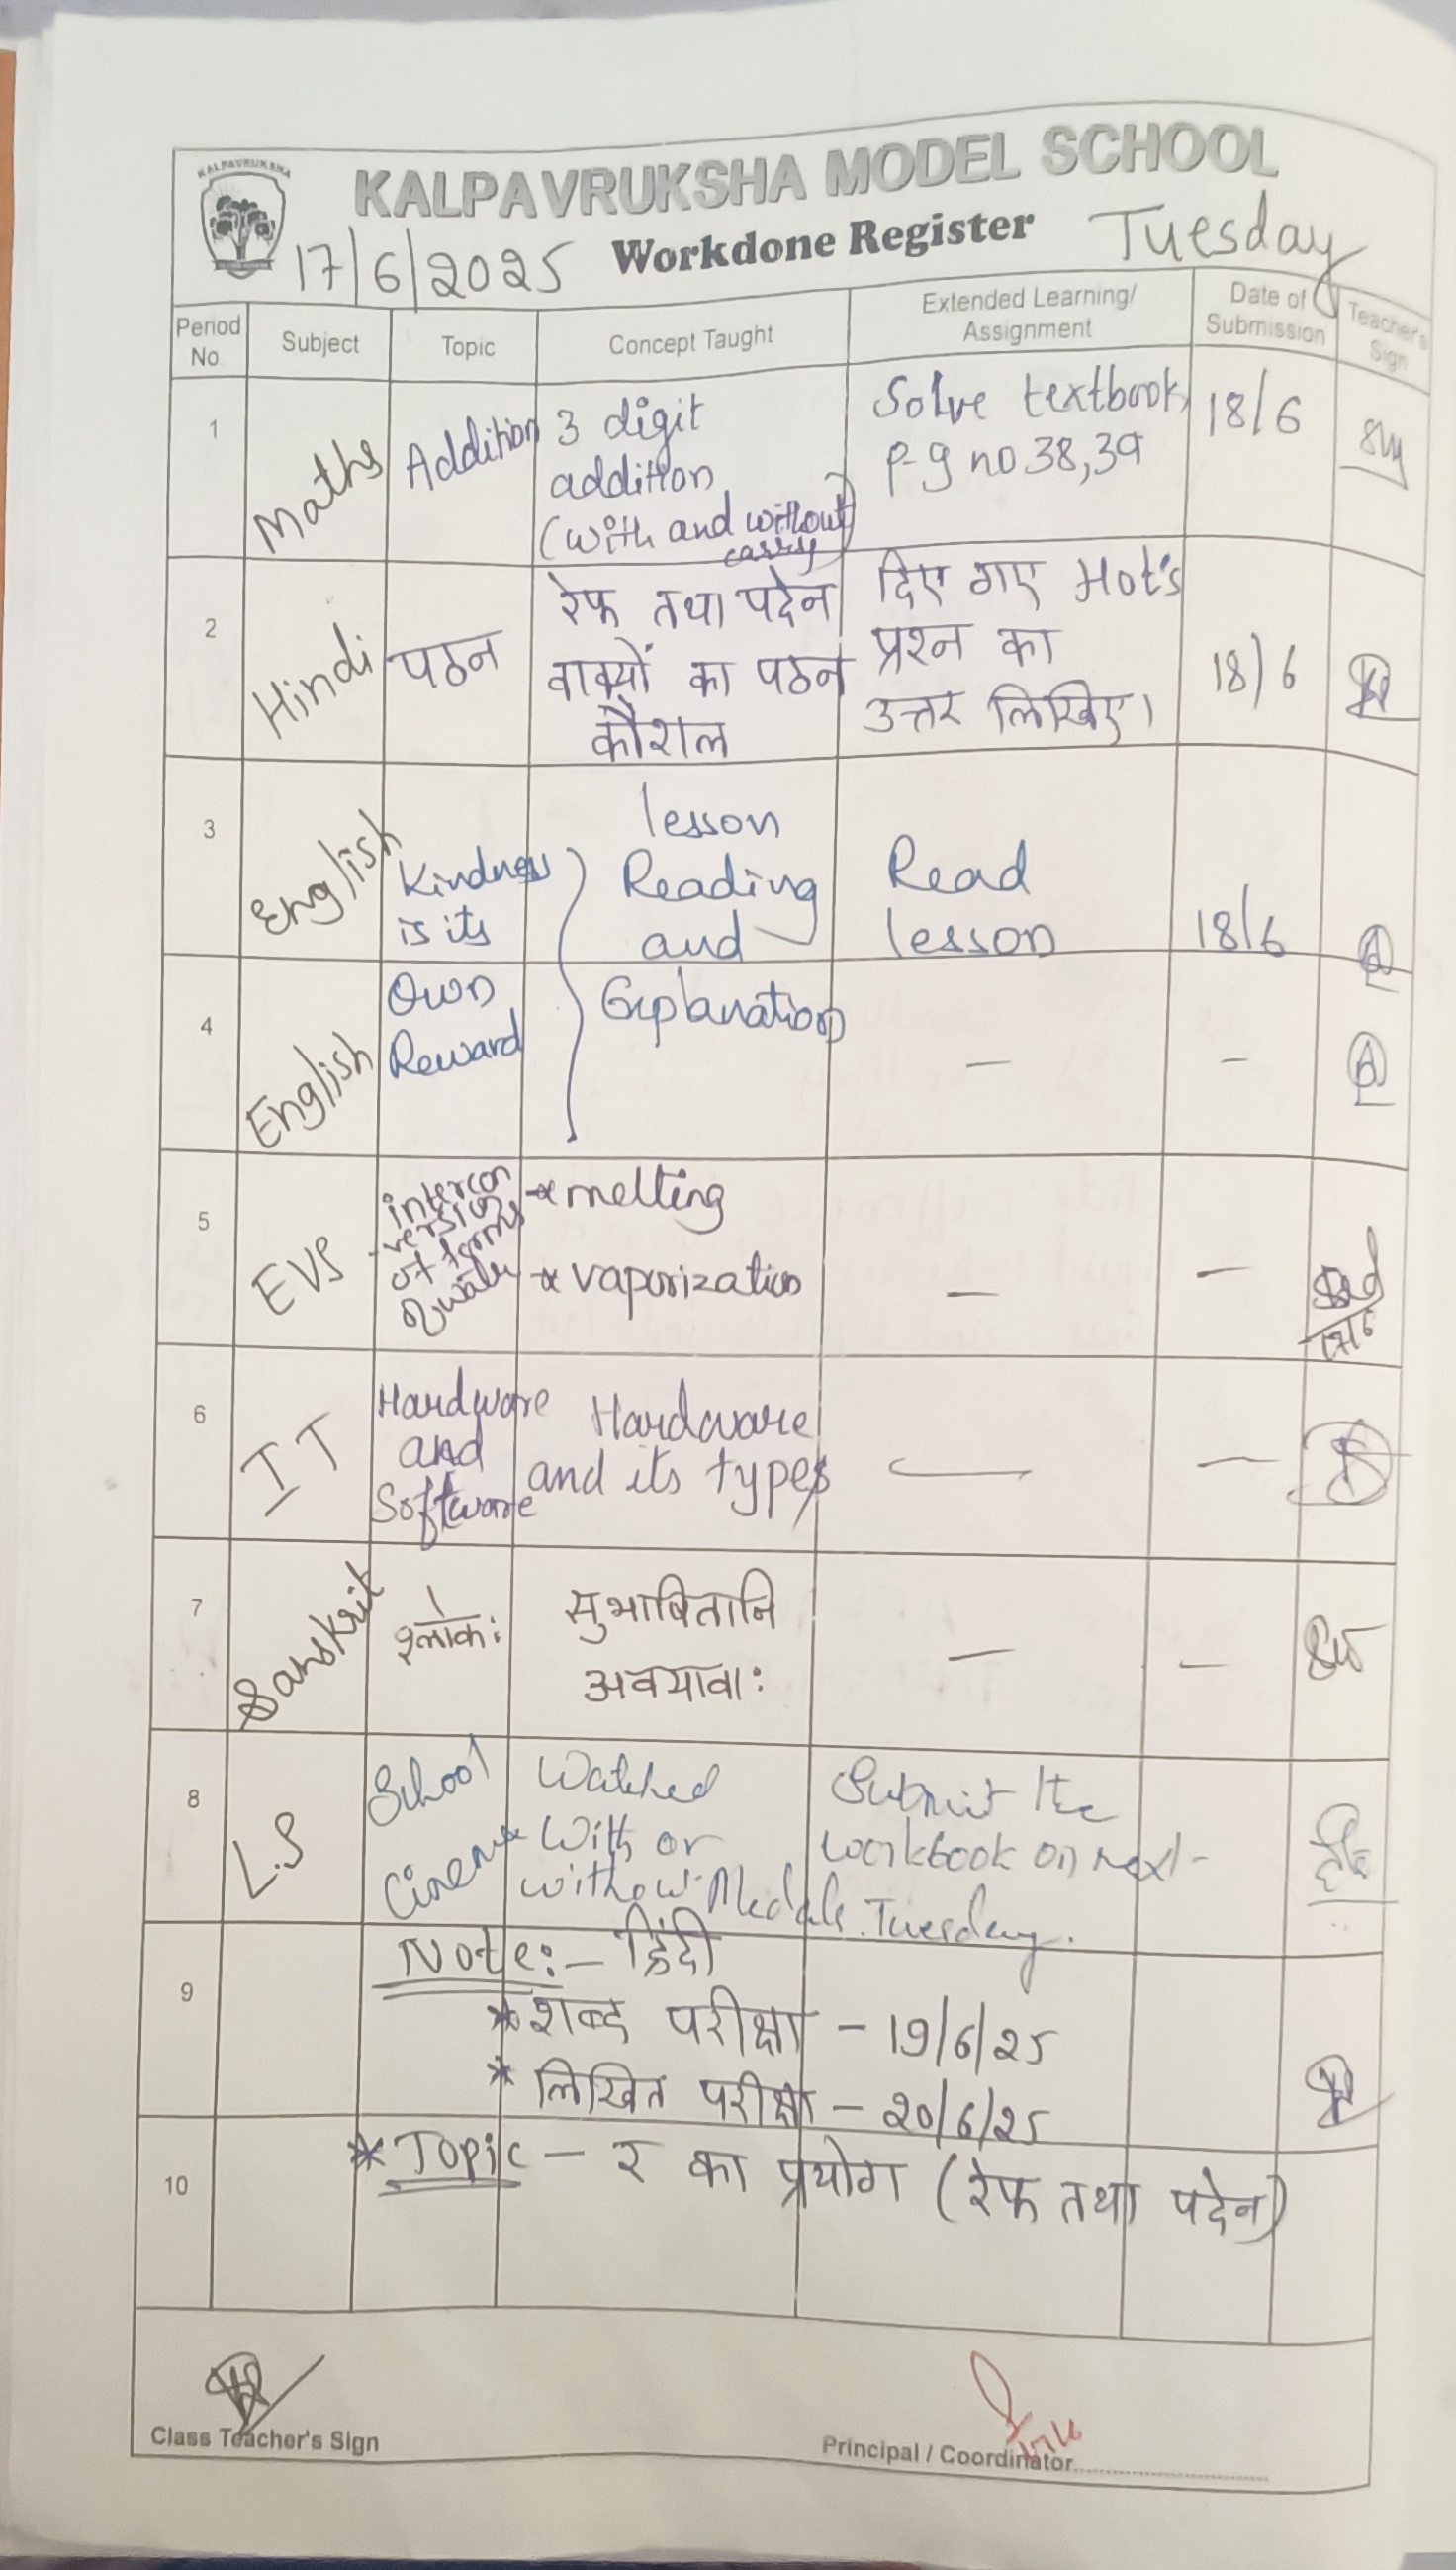 KALPAVRUKSHA
KALPAVRUKSHA MODEL SCHOOL
17/6/2025 Workdone Register Tuesday
Period No Subject Topic Concept Taught Extended Learning/ Assignment Date of Submission Teacher's Sign
1 Maths Addition 3 digit addition (with and without carry) Solve textbook p-g no 38,39 18/6
2 Hindi पठन रेफ तथा पदेन वाक्यों का पठन कौशल दिए गए Hot's प्रश्न का उत्तर लिखिए। 18/6
3 English Kindness is its lesson Reading and Read lesson 18/6
4 English Own Reward Explanation — –
5 EVS intercon -version of forms of water melting vaporization — — 17/6
6 IT Hardware and Software Hardware and its types — —
7 Sanskrit श्लोकः सुभाषितानि अवयावाः — —
8 L.S School Cinema Watched With or without Medals. Submit the workbook on next- Tuesday.
9 Note:- हिंदी
* शब्द परीक्षा - 19/6/25
* लिखित परीक्षा - 20/6/25
10 * Topic - र का प्रयोग (रेफ तथा पदेन)
17/6
Class Teacher's Sign Principal / Coordinator